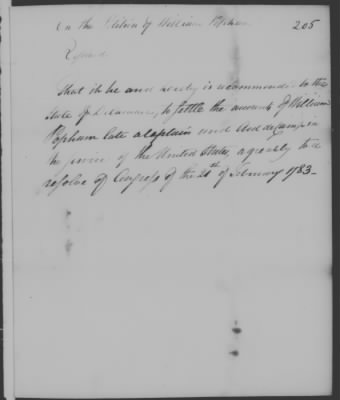 On the Petition of William Popham 205
Resolved
That it be and hereby is recommended to the
State of Delaware, to settle the accounts of William
Popham late a Captain and Aid de Camp in
the service of the United States, agreeably to a
resolve of Congress of the 20th of February 1783-